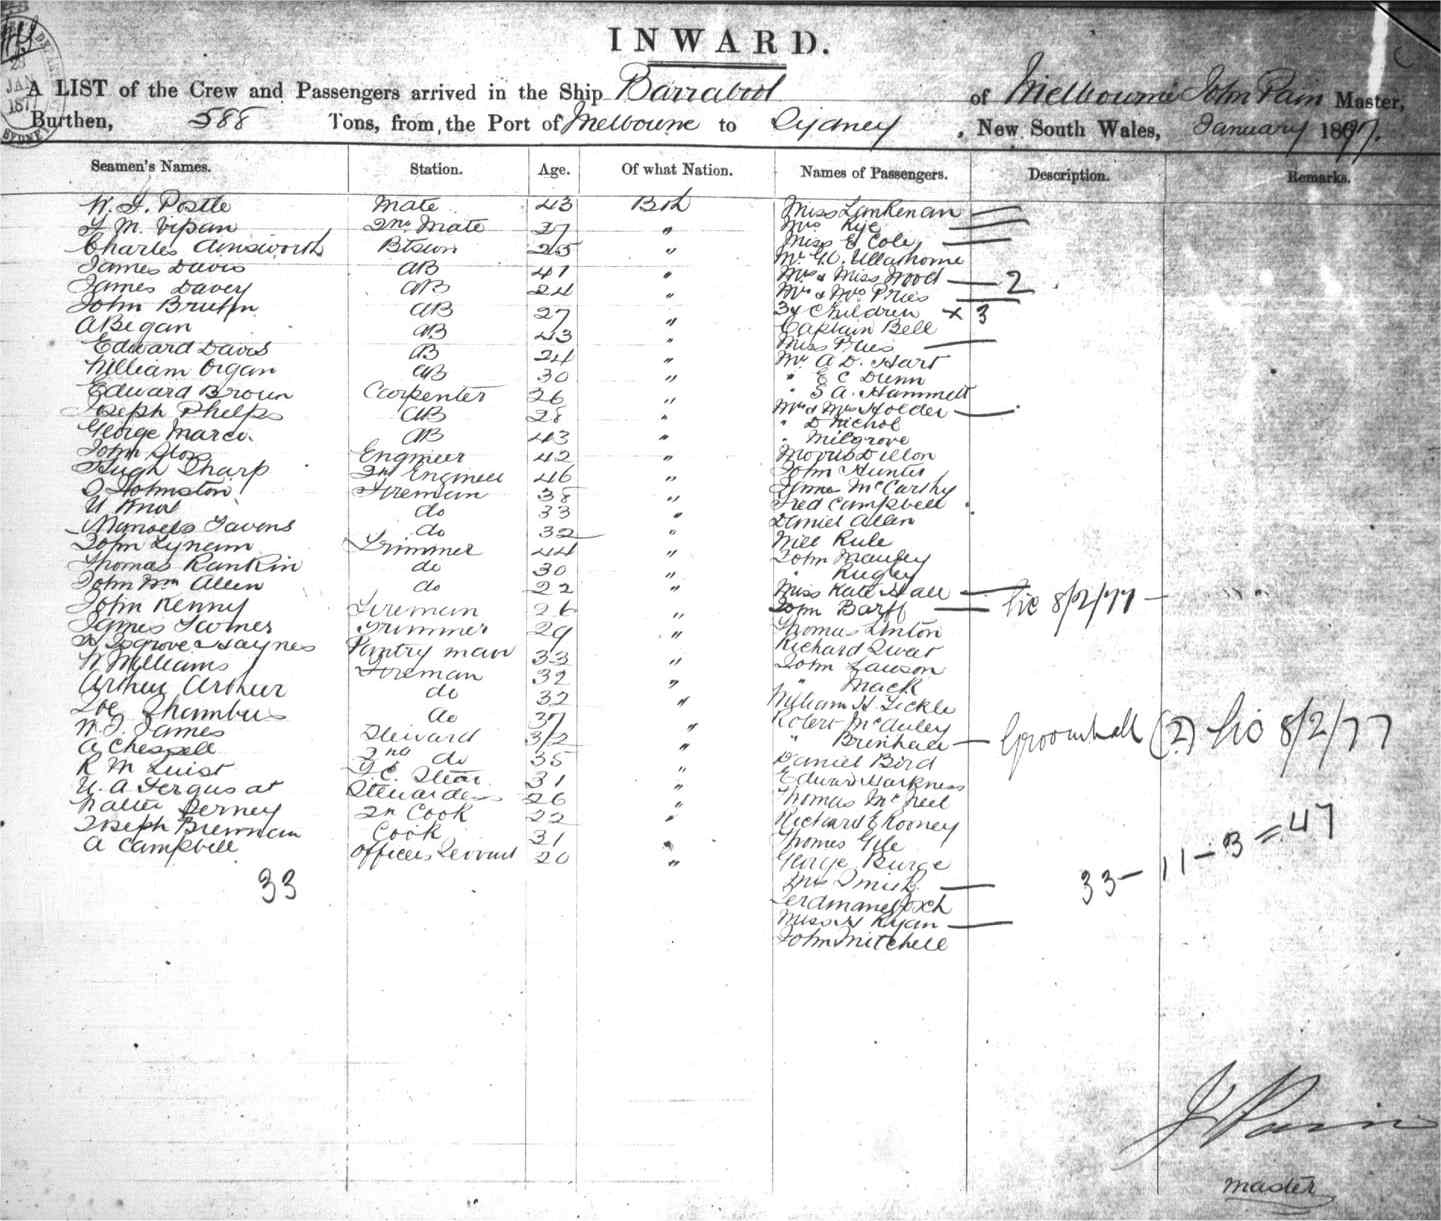 INWARD.
A LIST of the Crew and Passengers arrived in the Ship Barrabool of Melbourne John Pain Master,
Burthen, 588 Tons, from the Port of Melbourne to Sydney, New South Wales, January 1877.
Seamen's Names. Station. Age. Of what Nation. Names of Passengers. Description. Remarks.
W. J. Postle Mate 43 Brit
F. M. Vipan 2nd Mate 27 "
Charles Ainsworth Btswn 25 "
James Davis AB 41 "
James Davey AB 24 "
John AB 27 "
A Began AB 43 "
Edward Davis AB 24 "
William Organ AB 30 "
Edward Brown Carpenter 26 "
Joseph Phelps AB 28 "
George AB 43 "
John Engineer 42 "
Hugh Sharp 2nd Engineer 46 "
Johnston Fireman 38 "
do 33 "
do 32 "
John Lynam Trimmer 44 "
Thomas Rankin do 30 "
John Wm Allen do 22 "
John Kenny Fireman 26 "
James Trimmer 29 "
Haynes Pantry man 33 "
W Williams Fireman 32 "
Arthur Arthur do 32 "
Chambers do 37 "
W. J. James Steward 32 "
A Chessell 2nd do 35 "
R M 31 "
Stewardess 26 "
Walter 2n Cook 22 "
Joseph Brennan Cook 31 "
A Campbell Officers Servant 20 "
33
Miss Lankenan
Mrs Rye
Miss E Cole
Mr
Mrs & Miss Wood 2
Mr & Mrs Pries
3 Children x 3
Captain Bell
Miss Pries
Mr A. D. Hart
" E C Dunn
" S A. Hammett
Mr & Mrs Holder
" D Nichol
" Milgrove
Morris Dillon
John Hunter
McCarthy
Fred Campbell
Daniel Allen
Will Rule
John
" Rugby
Miss Kate Hall
John Barff Sic 8/2/77
Thomas Linton
Richard
John Lawson
" Mack
William H. Tickle
Robert McAuley
" Groomhall (?) Sic 8/2/77
Daniel Bird
Edward Harkness
Thomas McNeel
Richard E Rooney
Thomas
George Burge
Mrs Smith
33 - 11 - 3 = 47
Miss H Ryan
John Mitchell
J Pain
Master